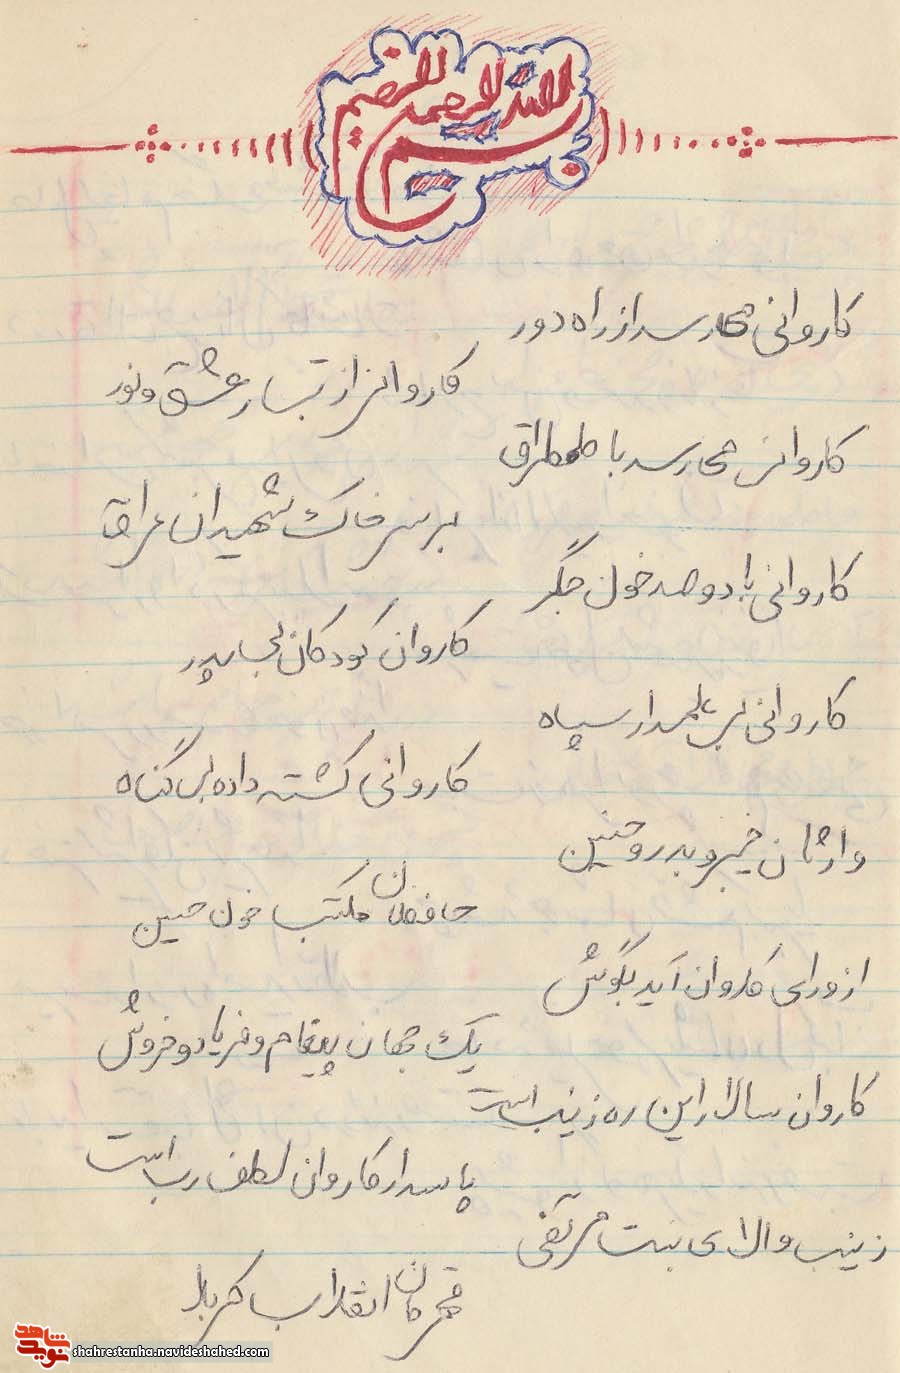 بسم الله الرحمن الرحیم
کاروانی می رسد از راه دور
کاروانی از تبار عشق و نور
کاروانی می رسد با طمطراق
بر سر خاک شهیدان عراق
کاروانی با دو صد خون جگر
کاروان کودکان بی پدر
کاروانی بی علمدار سپاه
کاروانی کشته داده بی گناه
وارثان خیبر و بدر و حنین
حافظان مکتب خون حسین
از ورای کاروان آید بگوش
یک جهان پیغام و فریاد و خروش
کاروان سالار این ره زینب است
پاسدار کاروان لطف رب است
زینب والای بنت مرتضی
قهرمان انقلاب کربلا
نوید شاهد
shahrestanha.navideshahed.com